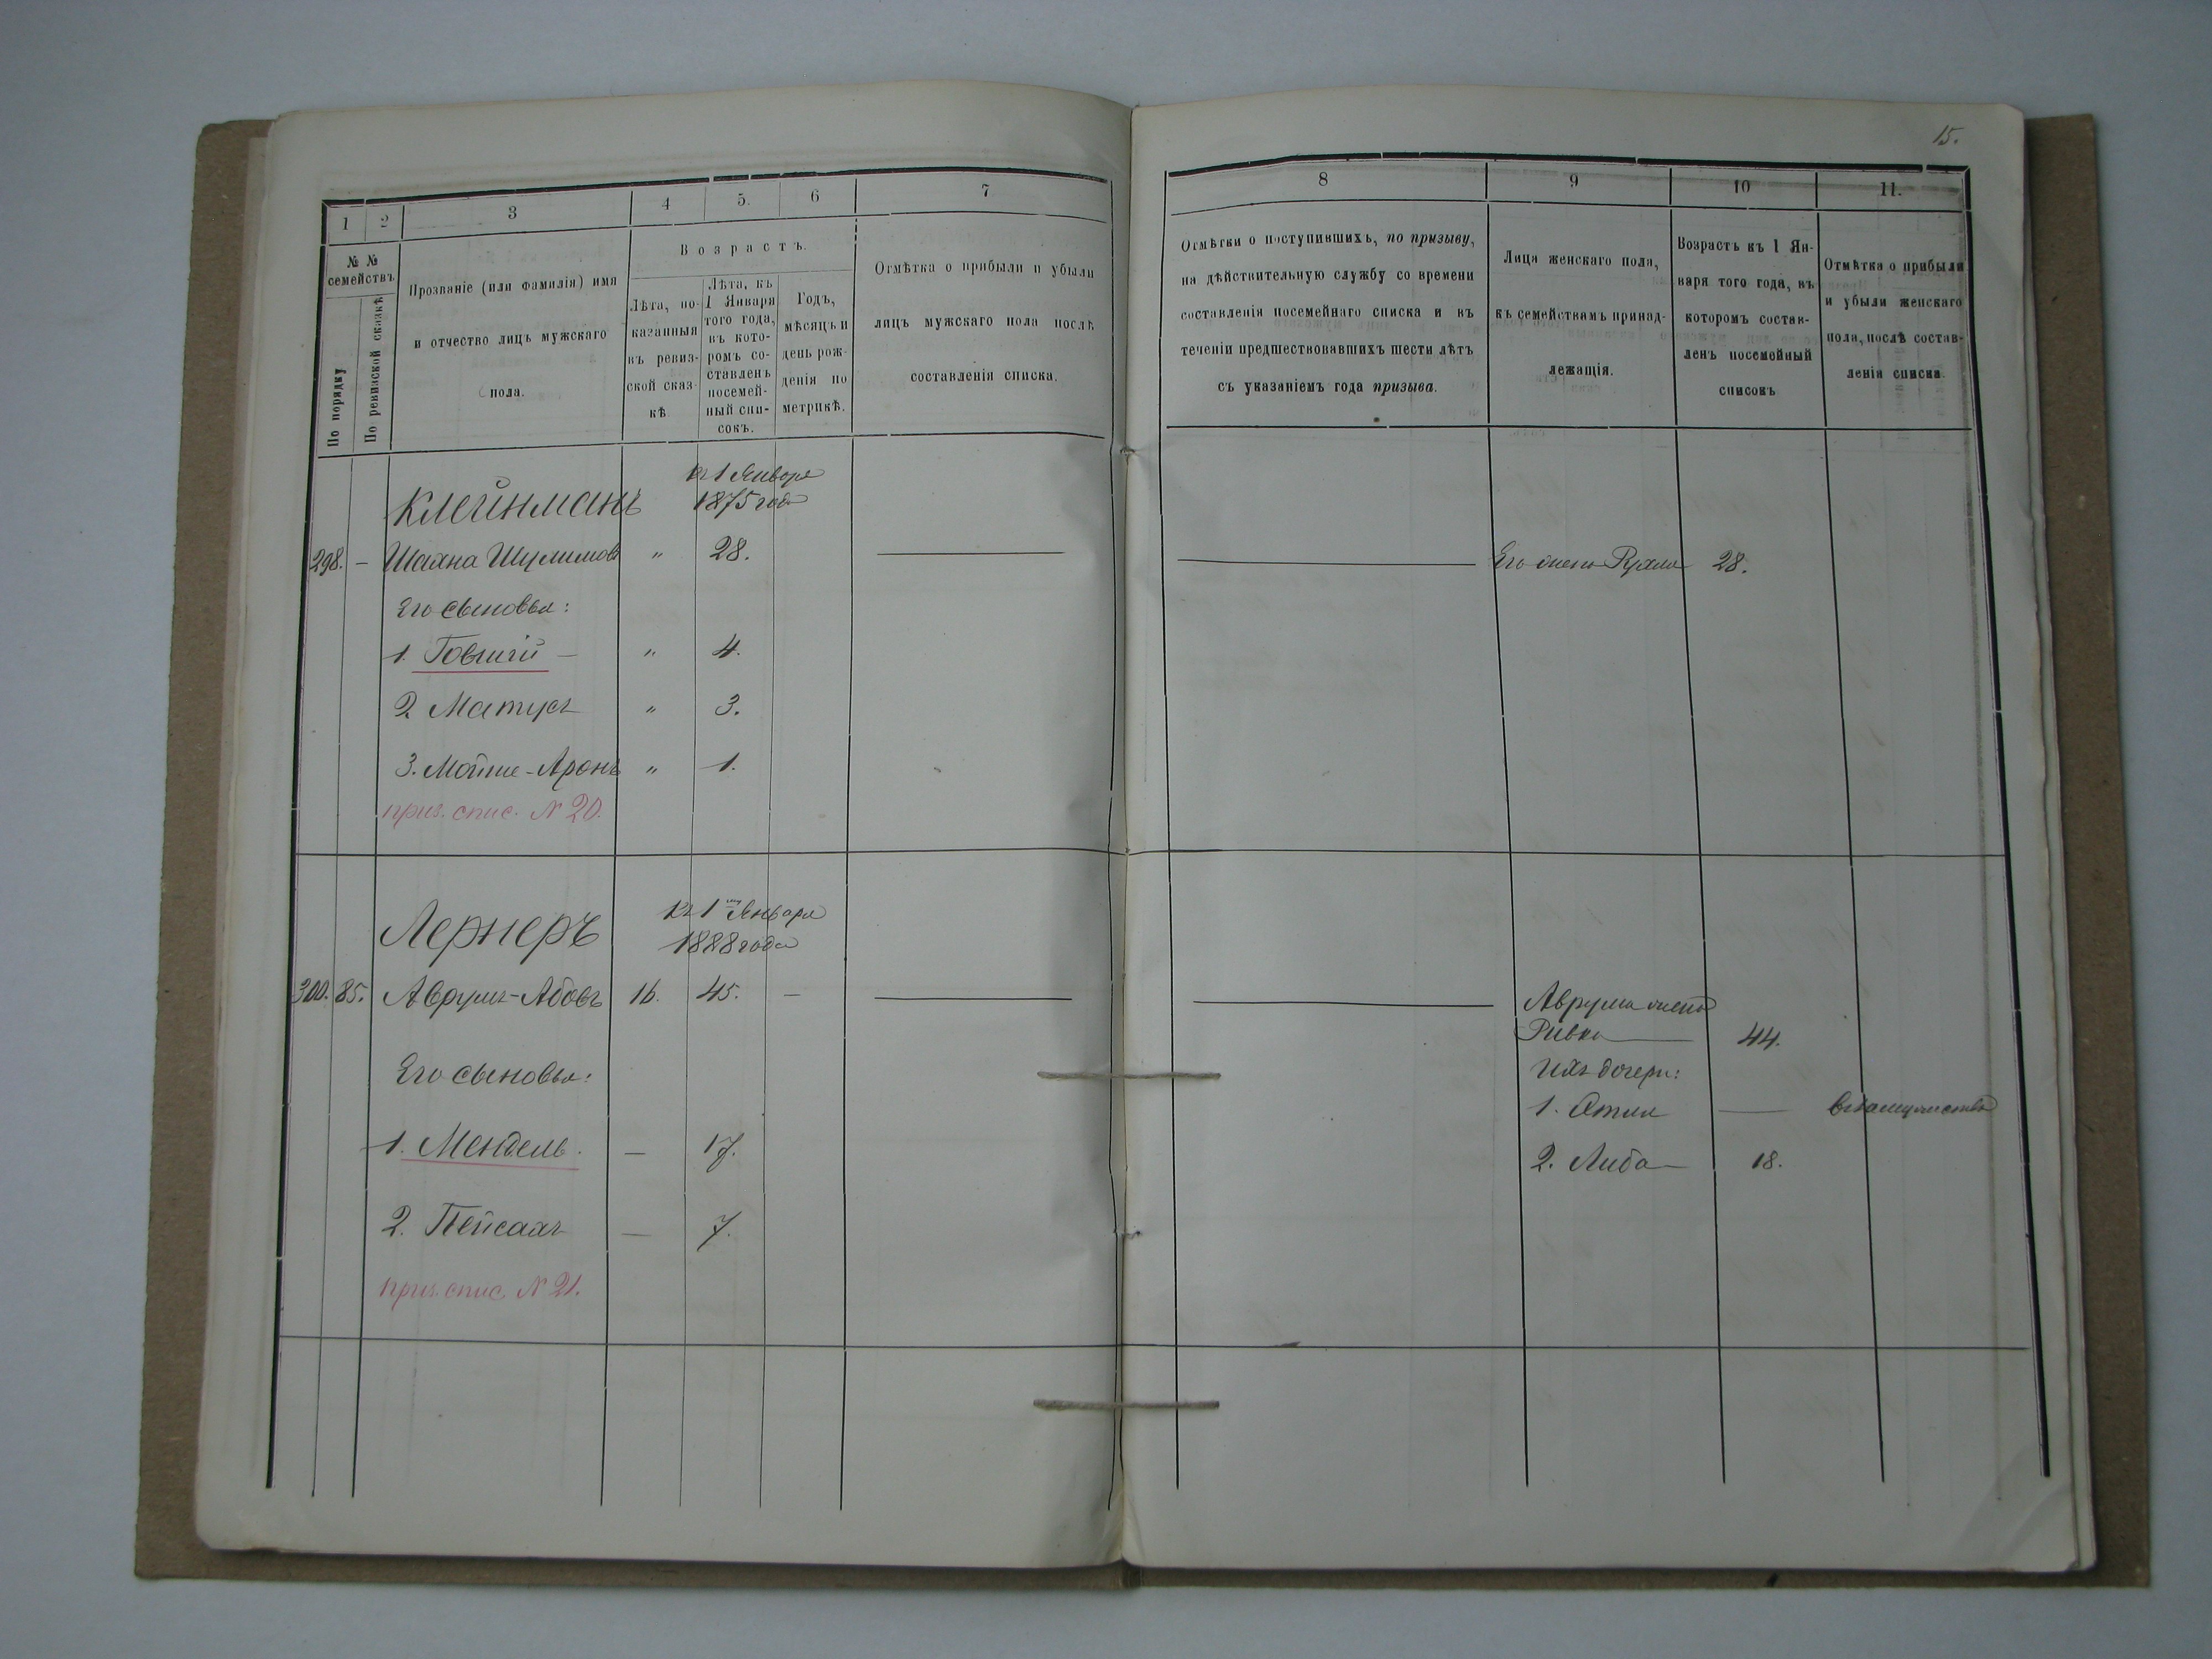 15.
1 2 3 4 5. 6 7
8 9 10 11.
№ №
семействъ
По порядку
По ревизской сказкѣ
Прозваніе (или фамилія) имя
и отчество лицъ мужскаго
пола.
Возрастъ.
Лѣта, по-
казанныя
въ ревиз-
ской сказ-
кѣ.
Лѣта, къ
1 Января
того года,
въ кото-
ромъ со-
ставленъ
посемей-
ный спи-
сокъ.
Годъ,
мѣсяцъ и
день рож-
денія по
метрикѣ.
Отмѣтка о прибыли и убыли
лицъ мужскаго пола послѣ
составленія списка.
Отмѣтки о поступившихъ, по призыву,
на дѣйствительную службу со времени
составленія посемейнаго списка и въ
теченіи предшествовавшихъ шести лѣтъ
съ указаніемъ года призыва.
Лица женскаго пола,
къ семействамъ принад-
лежащія.
Возрастъ къ 1 Ян-
варя того года, въ
которомъ состав-
ленъ посемейный
списокъ
Отмѣтка о прибыли
и убыли женскаго
пола, послѣ состав-
ленія списка.
Клейнманъ
къ 1 Января
1875 года
298. — Шахна Шулимовъ „ 28. Его жена Рухля 28.
Его сыновья:
1. Говшій — „ 4.
2. Матусъ „ 3.
3. Мойше-Аронъ „ 1.
приз. спис. N 20.
Лернеръ
Къ 1му Января
1888 года
300. 85. Аврумъ-Абовъ 16. 45. —
Аврума жена
Ривка — 44.
Ихъ дочери:
1. Этля — въ замужествѣ
2. Либа — 18.
Его сыновья:
1. Мендель. — 17.
2. Пейсахъ — 7.
приз. спис. N 21.